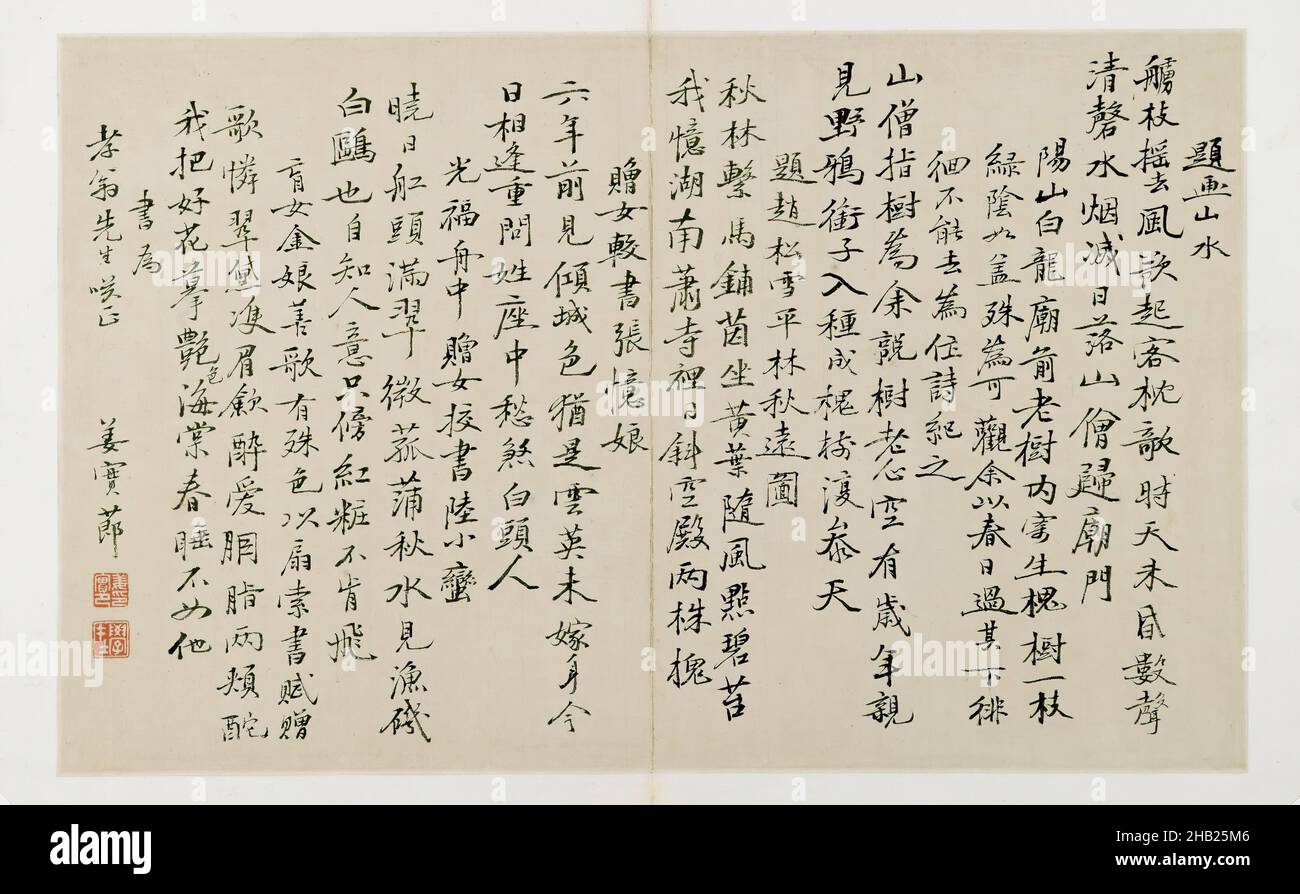 題画山水
艣枝摇去風欲起客枕歌時天未昏數聲
清磬水烟滅日落山僧歸廟門
陽山白龍廟前老樹内寄生槐樹一枝
緑陰如蓋殊為可觀余以春日過其下徘
徊不能去為住詩紀之
山僧指樹為余説樹老心空有歲年親
見野鴉銜子入種成槐樹復叅天
題趙松雪平林秋遠圖
秋林繫馬鋪茵坐黄葉隨風點碧苔
我憶湖南蕭寺裡日斜空殿兩株槐
贈女較書張憶娘
六年前見傾城色猶是雲英未嫁身今
日相逢重問姓座中愁煞白頭人
光福舟中贈女校書陸小蠻
曉日舡頭滿翠微菰蒲秋水見漁磯
白鷗也自知人意只傍紅粧不肯飛
盲女金娘善歌有殊色以扇索書賦贈
歌憐翠黛雙眉斂醉愛胭脂兩頰酡
我把好花摹艷色海棠春睡不如他
書為
孝翁先生咲正
姜實莭
alamy
Image ID: 2HB25M6
www.alamy.com